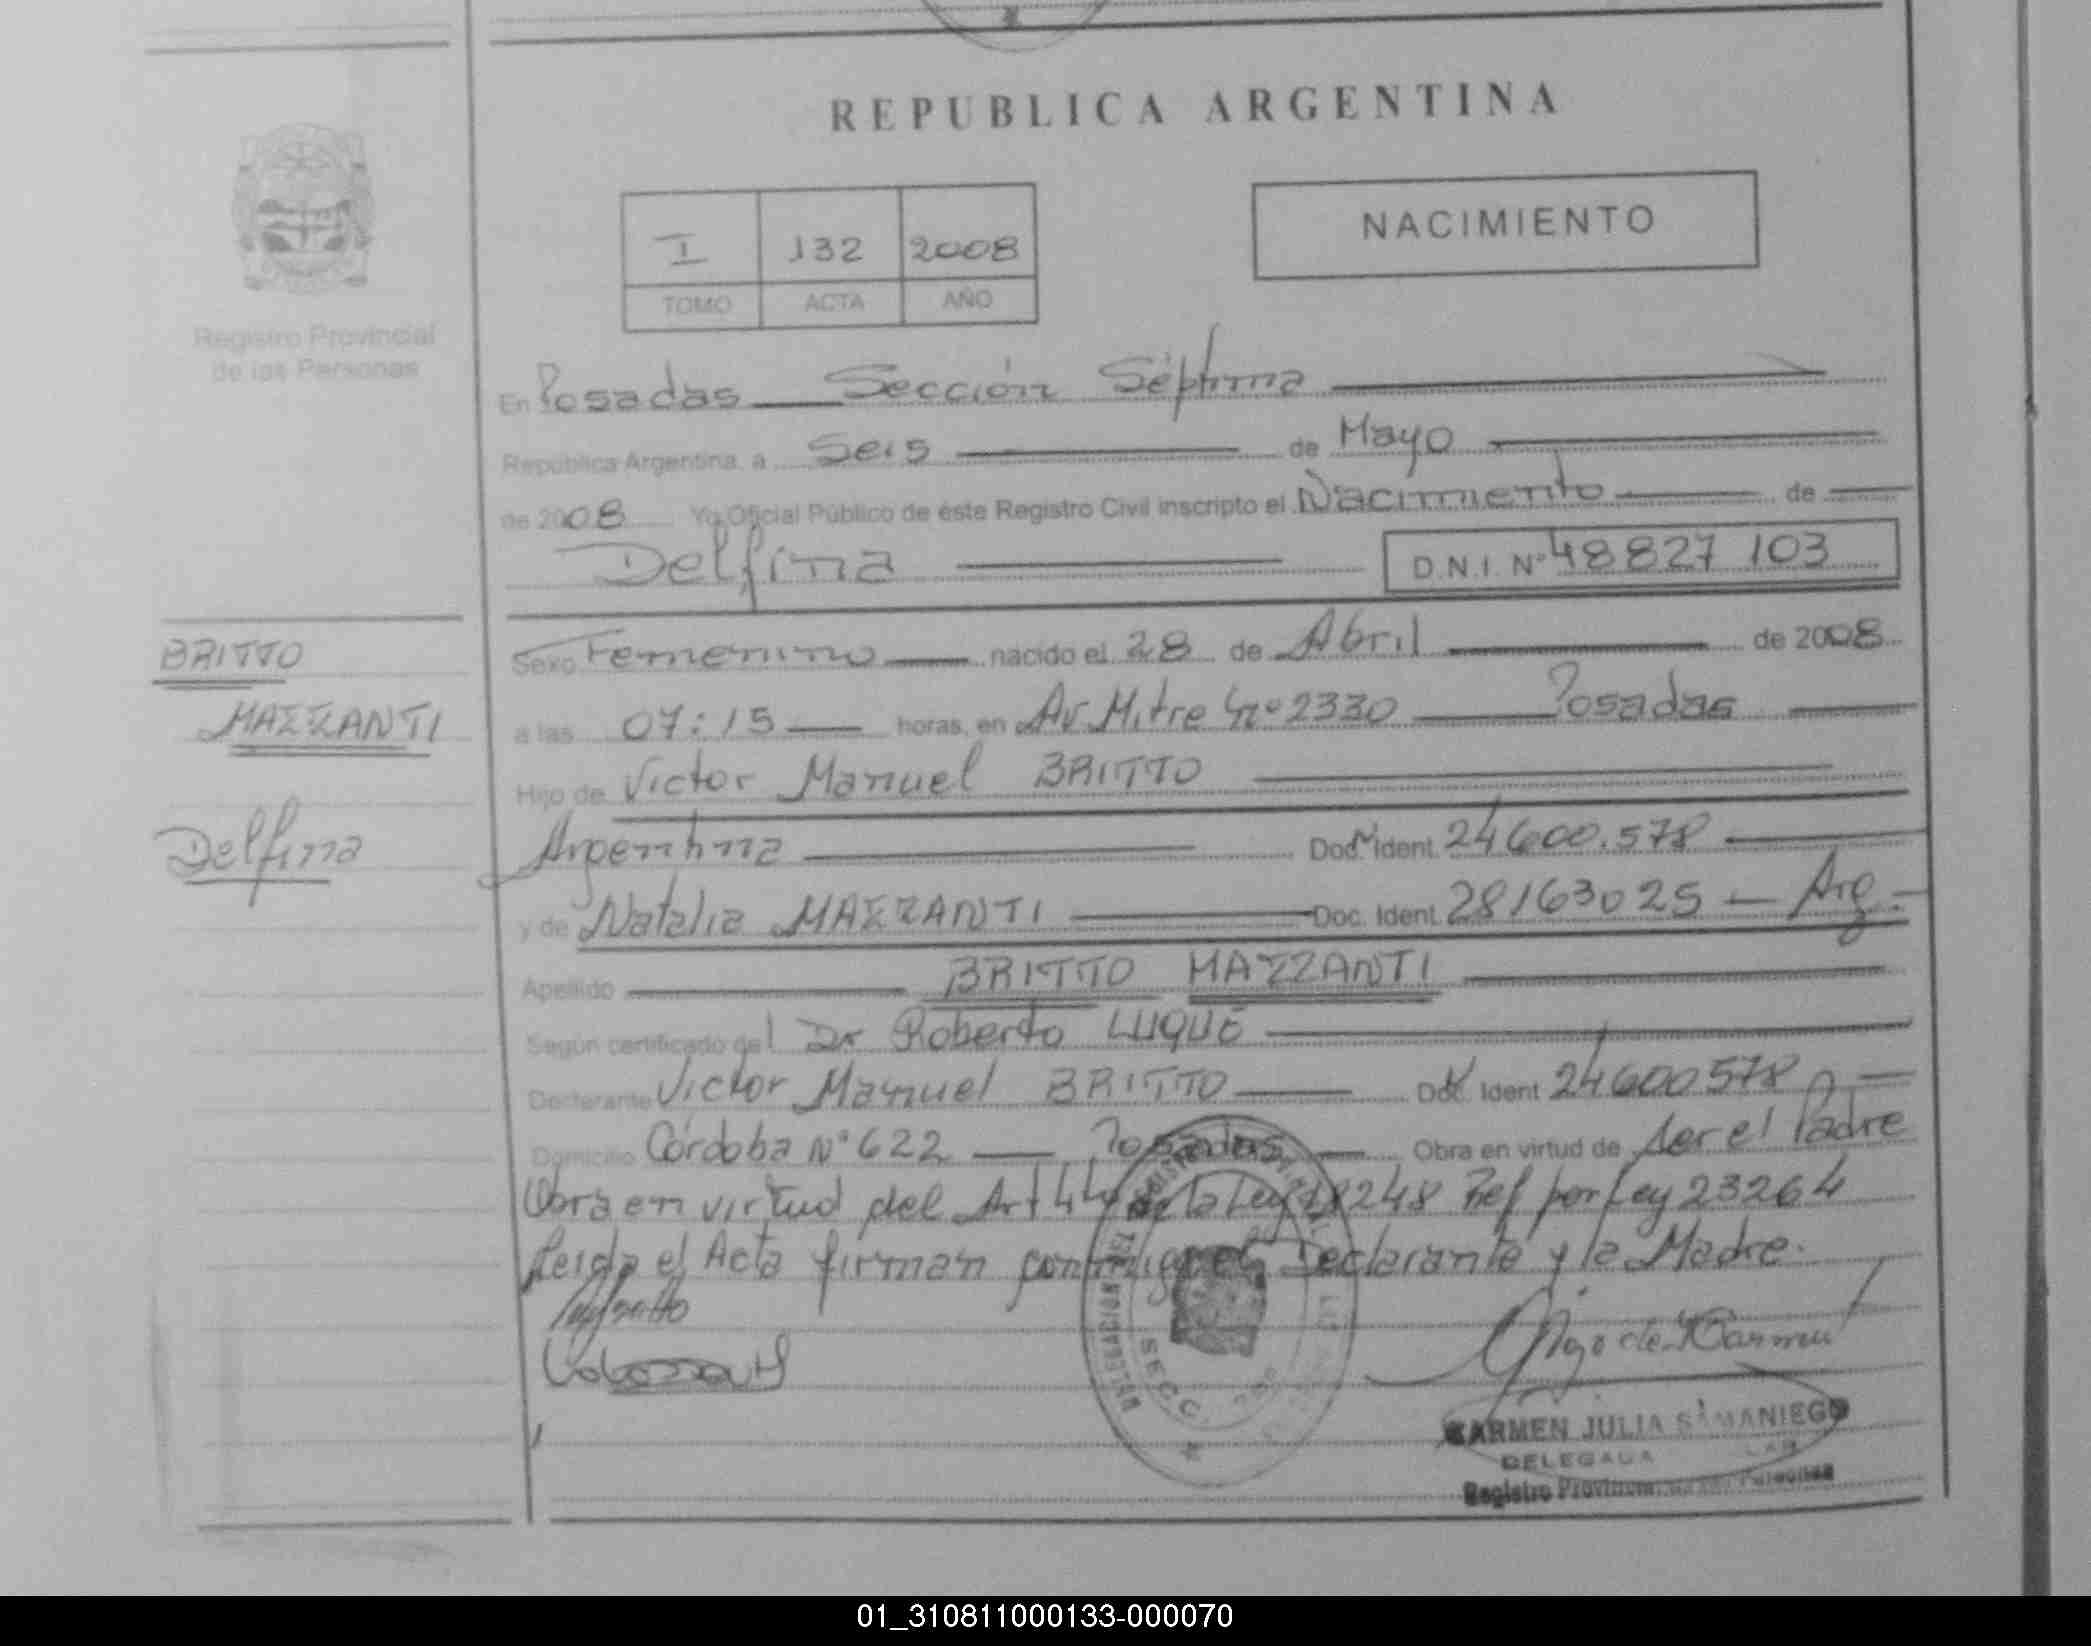 REPUBLICA ARGENTINA
NACIMIENTO
I 132 2008
TOMO ACTA AÑO
Registro Provincial
de las Personas
En Posadas Sección Séptima
República Argentina, a Seis de Mayo
de 2008 Yo Oficial Público de éste Registro Civil inscripto el Nacimiento de
Delfina D.N.I. Nº 48827 103
BRITTO
MAZZANTI
Delfina
Sexo Femenino nacido el 28 de Abril de 2008
a las 07:15 horas, en Av. Mitre Nº 2330 Posadas
Hijo de Victor Manuel BRITTO
Argentina Doc. Ident. 24600.578
y de Natalia MAZZANTI Doc. Ident. 28163025 Arg.
Apellido BRITTO MAZZANTI
Según certificado del Dr Roberto LUQUE
Declarante Victor Manuel BRITTO Doc. Ident 24600578
Domicilio Córdoba Nº 622 Posadas Obra en virtud de ser el Padre
Obra en virtud del Art 4 de la Ley 18248 Ref por Ley 23264
Leida el Acta firman conmigo el Declarante y la Madre.
DELEGACION DEL REGISTRO
SECC.
CARMEN JULIA SAMANIEGO
DELEGADA
Registro Provincial de las Personas
01_310811000133-000070